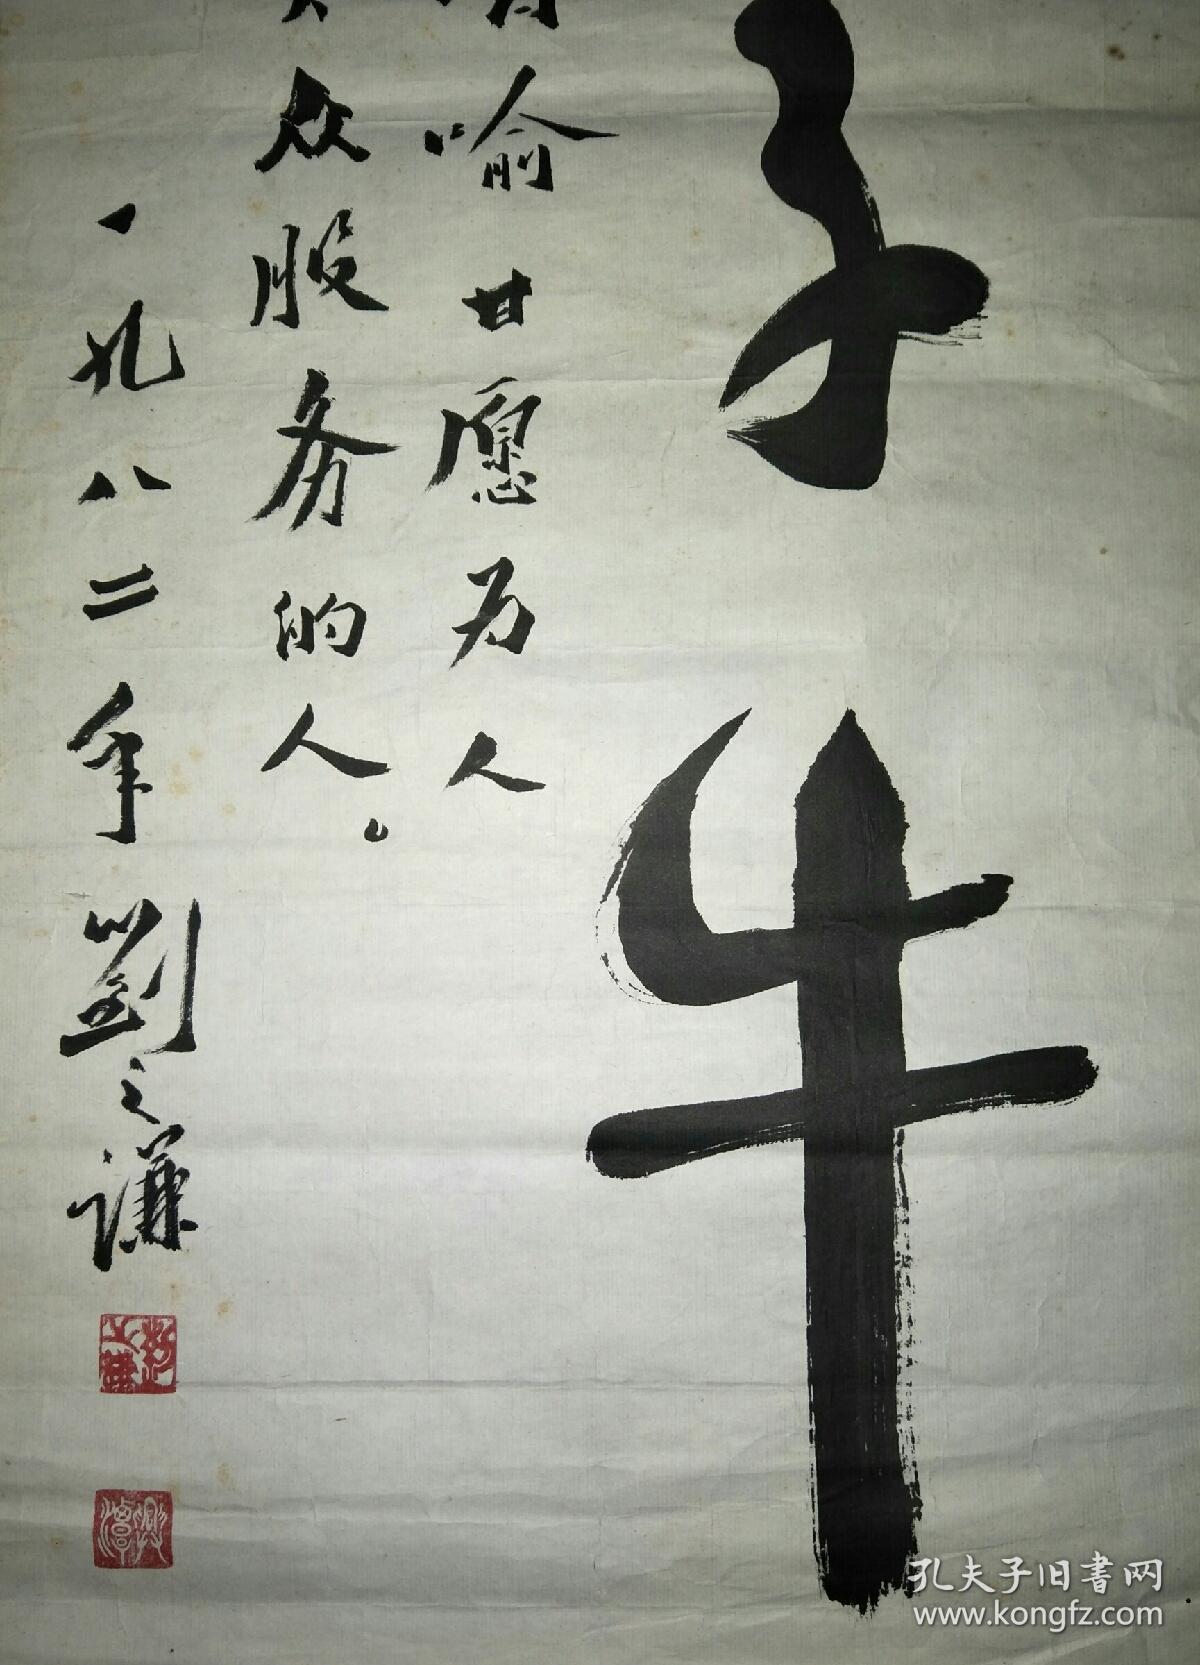 子牛
喻甘愿为人
众服务的人。
一九八二年劉之謙
孔夫子旧書网
www.kongfz.com